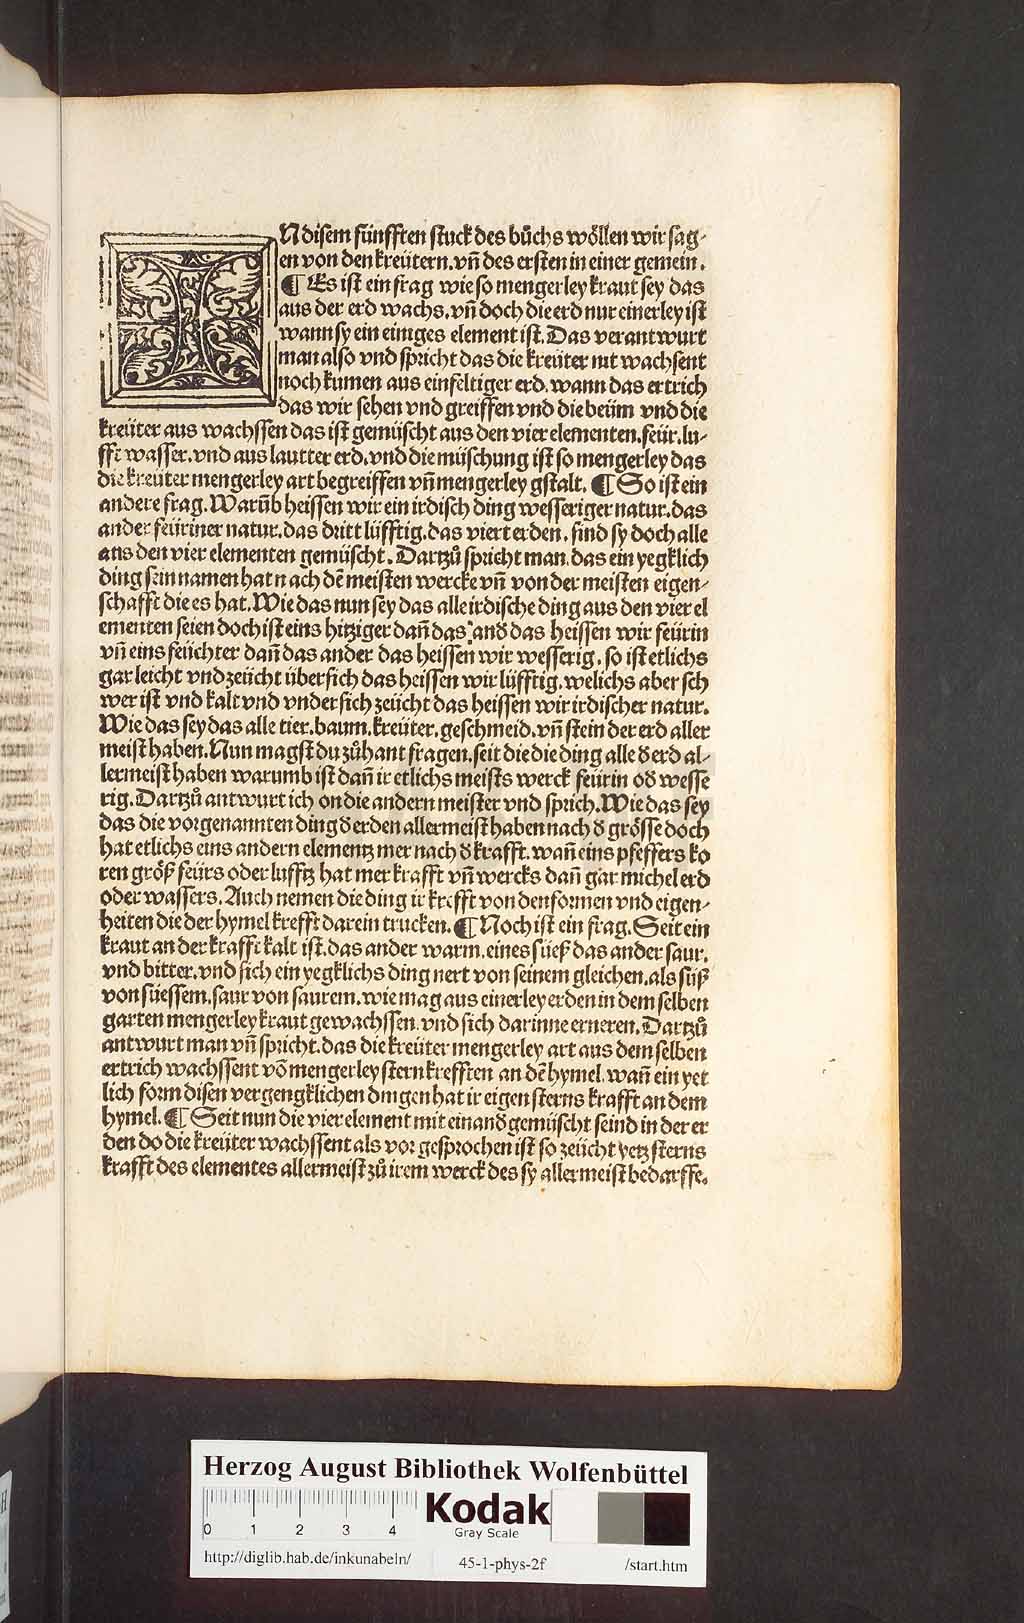 IN disem fünfften stuck des bůchs wöllen wir sag⸗
en von den kreütern. vñ des ersten in einer gemein.
¶ Es ist ein frag wie so mengerley kraut sey das
aus der erd wachs. vñ doch die erd nur einerley ist
wann sy ein einiges element ist. Das verantwurt
man also vnd spricht das die kreüter nit wachsent
noch kumen aus einfeltiger erd. wann das ertrich
das wir sehen vnd greiffen vnd die beüm vnd die
kreüter aus wachssen das ist gemüscht aus den vier elementen. feür. lu⸗
fft wasser. vnd aus lautter erd. vnd die müschung ist so mengerley das
die kreüter mengerley art begreiffen vñ mengerley gstalt. ¶ So ist ein
andere frag. Warũb heissen wir ein irdisch ding wesseriger natur. das
ander feüriner natur. das dritt lüfftig. das viert erden. sind sy doch alle
aus den vier elementen gemüscht. Dartzů spricht man. das ein yegklich
ding sein namen hat nach dē meisten wercke vñ von der meisten eigen⸗
schafft die es hat. Wie das nun sey das alle irdische ding aus den vier el
ementen seien doch ist eins hitziger dañ das and̄ das heissen wir feürin
vñ eins feüchter dañ das ander das heissen wir wesserig. so ist etlichs
gar leicht vnd zeücht über sich das heissen wir lüfftig. welichs aber sch
wer ist vnd kalt vnd vnder sich zeücht das heissen wir irdischer natur.
Wie das sey das alle tier. baum. kreüter. geschmeid. vñ stein der erd aller
meist haben. Nun magst du zůhant fragen. seit die die ding alle d̄ erd al⸗
lermeist haben warumb ist dañ ir etlichs meists werck feürin od̄ wesse
rig. Dartzů antwurt ich on die andern meister vnd sprich. Wie das sey
das die vorgenannten ding d̄ erden allermeist haben nach d̄ grösse doch
hat etlichs eins andern elementz mer nach d̄ krafft. wañ eins pfeffers ko
ren größ feürs oder luffts hat mer krafft vñ wercks dañ gar michel erd
oder wassers. Auch nemen die ding ir krefft von den formen vnd eigen⸗
heiten die der hymel krefft darein trucken. ¶ Noch ist ein frag. Seit ein
kraut an der krafft kalt ist. das ander warm. eines süeß das ander saur.
vnd bitter. vnd sich ein yegklichs ding nert von seinem gleichen. als süß
von süessem. saur von saurem. wie mag aus einerley erden in dem selben
garten mengerley kraut gewachssen. vnd sich darinne erneren. Dartzů
antwurt man vñ spricht. das die kreüter mengerley art aus dem selben
ertrich wachssent võ mengerley stern krefften an dē hymel. wañ ein yet
lich form disen vergengklichen dingen hat ir eigen sterns krafft an dem
hymel. ¶ Seit nun die vier element mit einand̄ gemüscht seind in der er
den do die kreüter wachssent als vor gesprochen ist so zeücht yetz sterns
krafft des elementes allermeist zů irem werck des sy allermeist bedarffe.
Herzog August Bibliothek Wolfenbüttel
0 1 2 3 4
Kodak
Gray Scale
http://diglib.hab.de/inkunabeln/ 45-1-phys-2f /start.htm